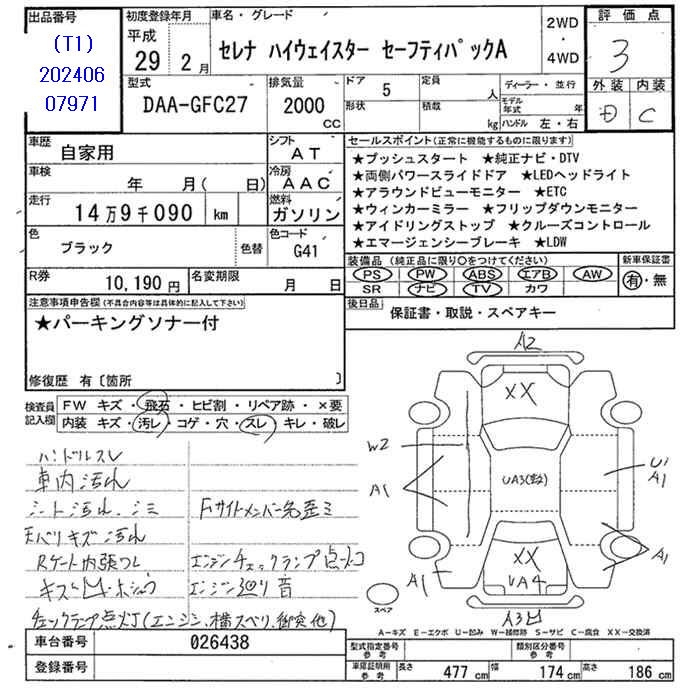 出品番号
(T1)
202406
07971
初度登録年月
平成
29 2月
車名・グレード
セレナ ハイウェイスター セーフティパックA
2WD
・
4WD
評価点
3
外装 内装
D C
型式
DAA-GFC27
排気量
2000
CC
ドア
5
形状
定員
人
積載
kg
ディーラー・並行
モデル
年式 年
ハンドル 左・右
車歴
自家用
シフト
AT
車検
年 月( 日)
冷房
AAC
走行
14万9千090 km
燃料
ガソリン
色
ブラック
色替
色コード
G41
R券
10,190円
名変期限
月 日
セールスポイント(正常に機能するものに限ります)
★プッシュスタート ★純正ナビ・DTV
★両側パワースライドドア ★LEDヘッドライト
★アラウンドビューモニター ★ETC
★ウィンカーミラー ★フリップダウンモニター
★アイドリングストップ ★クルーズコントロール
★エマージェンシーブレーキ ★LDW
装備品(純正品に限り○をつけてください)
PS PW ABS エアB AW
SR ナビ TV カワ
新車保証書
有・無
後日品
保証書・取説・スペアキー
注意事項申告欄(不具合内容等は具体的に記入して下さい)
★パーキングソナー付
修復歴 有〔箇所 〕
検査員
記入欄
FW キズ・飛石・ヒビ割・リペア跡・×要
内装 キズ・汚レ・コゲ・穴・スレ・キレ・破レ
ハンドルスレ
車内汚れ
シート汚れ、シミ
Fサイドメンバー先歪ミ
天バリキズ汚れ
Rゲート内張スレ
エンジンチェックランプ点灯
キズ凹ホショウ
エンジン廻り音
チェックランプ点灯(エンジン、横スベリ、衝突他)
A2
XX
W2
A1
UA3
U1
A1
XX
UA4
A1
A1
A3凹
スペア
A-キズ E-エクボ U-凹み W-補修跡 S-サビ C-腐食 XX-交換済
車台番号
026438
登録番号
型式指定番号
参考
類別区分番号
参考
車庫証明用
参考
長さ 477 cm 幅 174 cm 高さ 186 cm